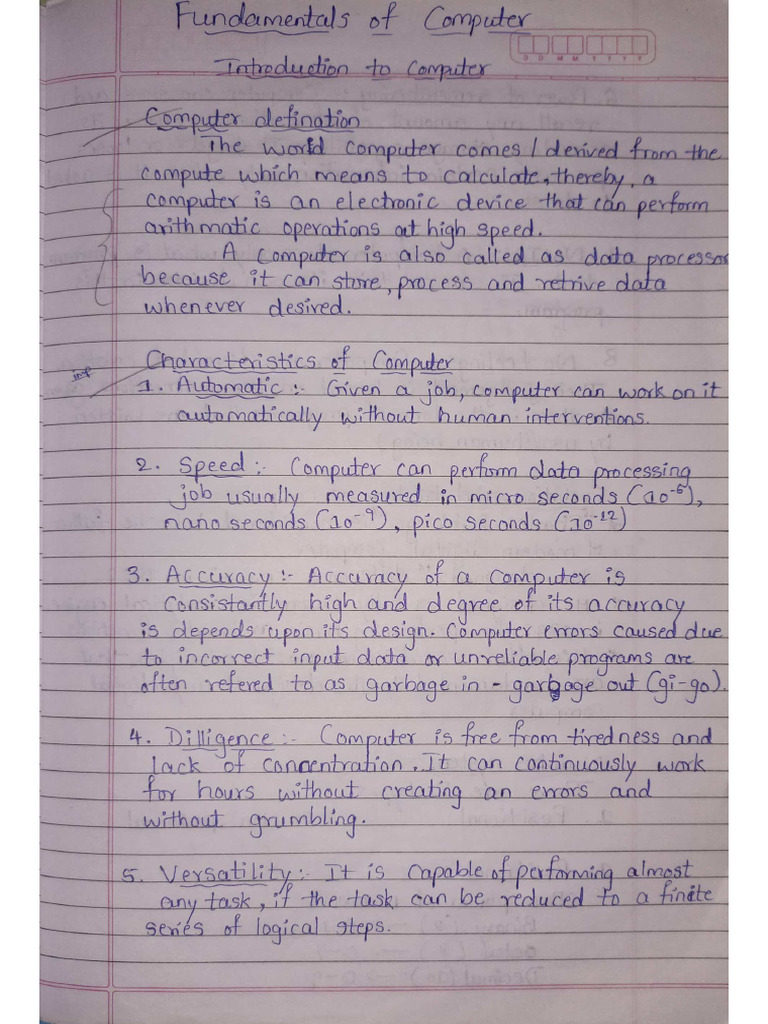 Fundamentals of Computer
D D M M Y Y Y Y
Introduction to Computer
Computer defination
The world computer comes/derived from the
compute which means to calculate, thereby, a
computer is an electronic device that can perform
arithmatic operations at high speed.
A computer is also called as data processor
because it can store, process and retrive data
whenever desired.
Characteristics of Computer
imp
1. Automatic :- Given a job, computer can work on it
automatically without human interventions.
2. Speed :- Computer can perform data processing
job usually measured in micro seconds (10⁻⁶),
nano seconds (10⁻⁹), pico seconds (10⁻¹²)
3. Accuracy :- Accuracy of a computer is
consistantly high and degree of its accuracy
is depends upon its design. Computer errors caused due
to incorrect input data or unreliable programs are
often refered to as garbage in - garbage out (gi-go).
4. Dilligence :- Computer is free from tiredness and
lack of concentration. It can continuously work
for hours without creating an errors and
without grumbling.
5. Versatility :- It is capable of performing almost
any task, if the task can be reduced to a finite
series of logical steps.